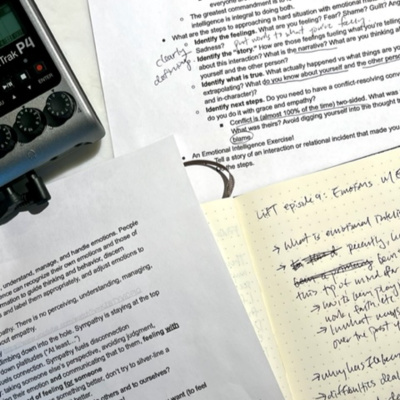 Trak P4
everyone
The greatest comment
intelligence is integral to doing
What are the steps to approaching a hard situation with emotional
Identify the feelings. What are you feeling? Fear? Shame? Guilt? Ang
Sadness? Put words to what you're feeling
Identify the "story." How are those feelings fueling what you're telling
about this interaction? What is the narrative? What are you thinking
yourself and the other person?
clearly
defining
Identify what is true. What actually happened vs what things are you
extrapolating? What do you know about yourself and the other perso
and in-character)?
Identify next steps. Do you need to have a conflict-resolving conver
do you do it with grace and empathy?
Conflict is (almost 100% of the time) two-sided. What was
What was theirs? Avoid digging yourself into this thought t
blame.
An Emotional Intelligence Exercise!
Tell a story of an interaction or relational incident that made you
the steps.
, understand, manage, and handle emotions. People
ence can recognize their own emotions and those of
mation to guide thinking and behavior, discern
s and label them appropriately, and adjust emotions to
pathy. There is no perceiving, understanding, managing,
out empathy.
mbing down into the hole. Sympathy is staying at the top
down platitudes ("At least...")
fuels connection. Sympathy fuels disconnection
taking someone else's perspective, avoiding judgment,
r emotion and communicating that to them, feeling with
d of feeling for someone
something better, don't try to silver-line a
thing better.
others and to ourselves?
want (to feel
LIFT episode 9: Emotions w/ E
→ What is emotional intell
→ recently,
been
this top of mind for
→ why
→ difficulties deal